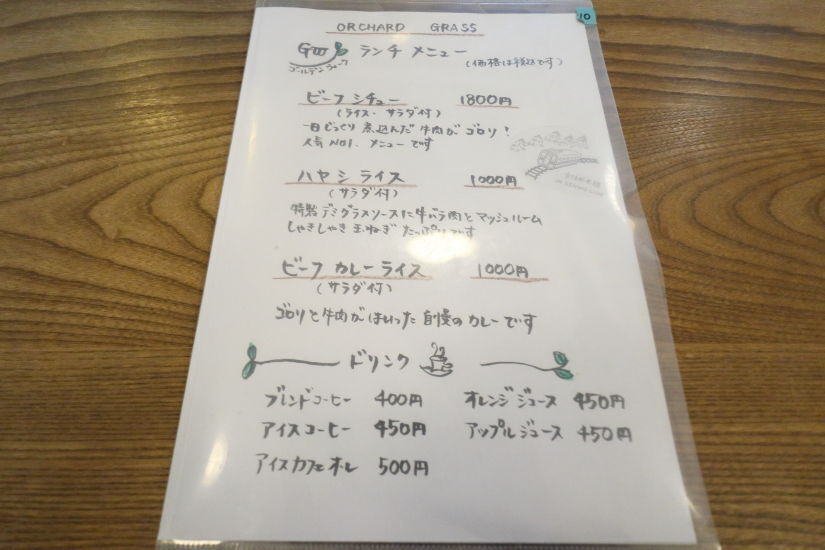 10
ORCHARD GRASS
GW ランチ メニュー
ゴールデンウィーク (価格は税込です)
ビーフシチュー 1800円
(ライス・サラダ付)
一日じっくり煮込んだ牛肉がゴロリ!
人気NO1.メニューです
ハヤシライス 1000円
(サラダ付)
特製デミグラスソースに牛バラ肉とマッシュルーム
しゃきしゃき玉ねぎたっぷりです
ビーフカレーライス 1000円
(サラダ付)
ゴロリと牛肉がはいった自慢のカレーです
ドリンク
ブレンドコーヒー 400円 オレンジジュース 450円
アイスコーヒー 450円 アップルジュース 450円
アイスカフェオレ 500円